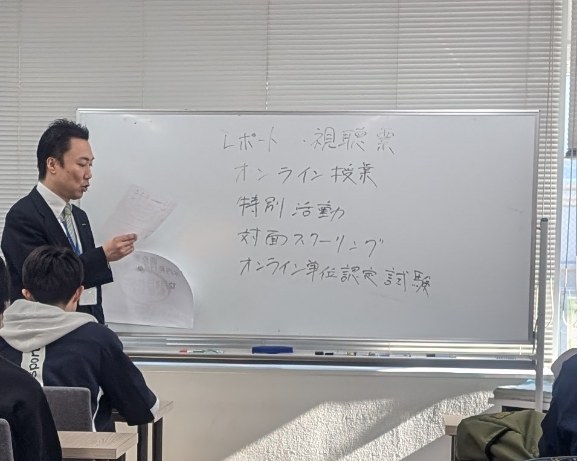 レポート ・視聴票
オンライン授業
特別活動
対面スクーリング
オンライン単位認定試験